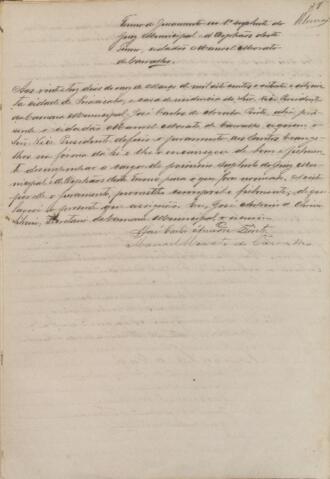 Termo de Juramento do 1º suplente do
Juiz Municipal e de Orphãos deste
termo, o cidadão Manoel Morato
de Carvalho.
Aos vinte e seis dias do mes de Março de mil oito centos e oitenta e
cidade de Piracicaba, e casa da residencia do Snr. Vice Presidente
da Camara Municipal, José Carlos de Arruda Pinto, ahi pre
sente o cidadão Manoel Morato de Carvalho, o mesmo
Snr. Vice Presidente deferio o juramento aos Santos Evange
lhos na forma da lei e lhe encarregou de bem e fielmen
te desempenhar o cargo de primeiro suplente do Juiz Mu
nicipal e d'Orphãos deste Termo para o que fora nomeado. 
o juramento, prometteu cumprir fielmente, do que
lavrei o presente que assignão. Eu, José Antonio
Secretario da Camara Municipal, o escrevi
José Carlos d'Arruda Pinto
Manoel Morato de Carvalho